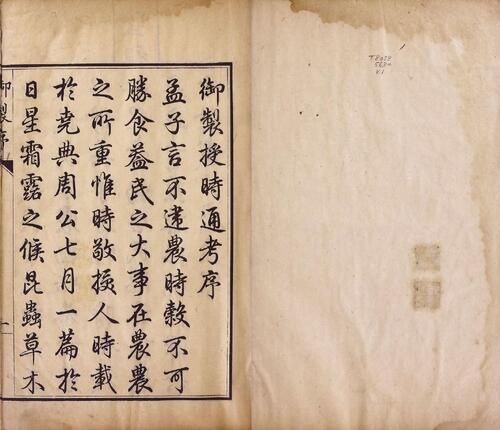 御製授時通考序
孟子言不違農時穀不可
勝食蓋民之大事在農農
之所重惟時敬授人時載
於堯典周公七月一篇於
日星霜露之候昆蟲草木
御製序
一
T 8028
V.1